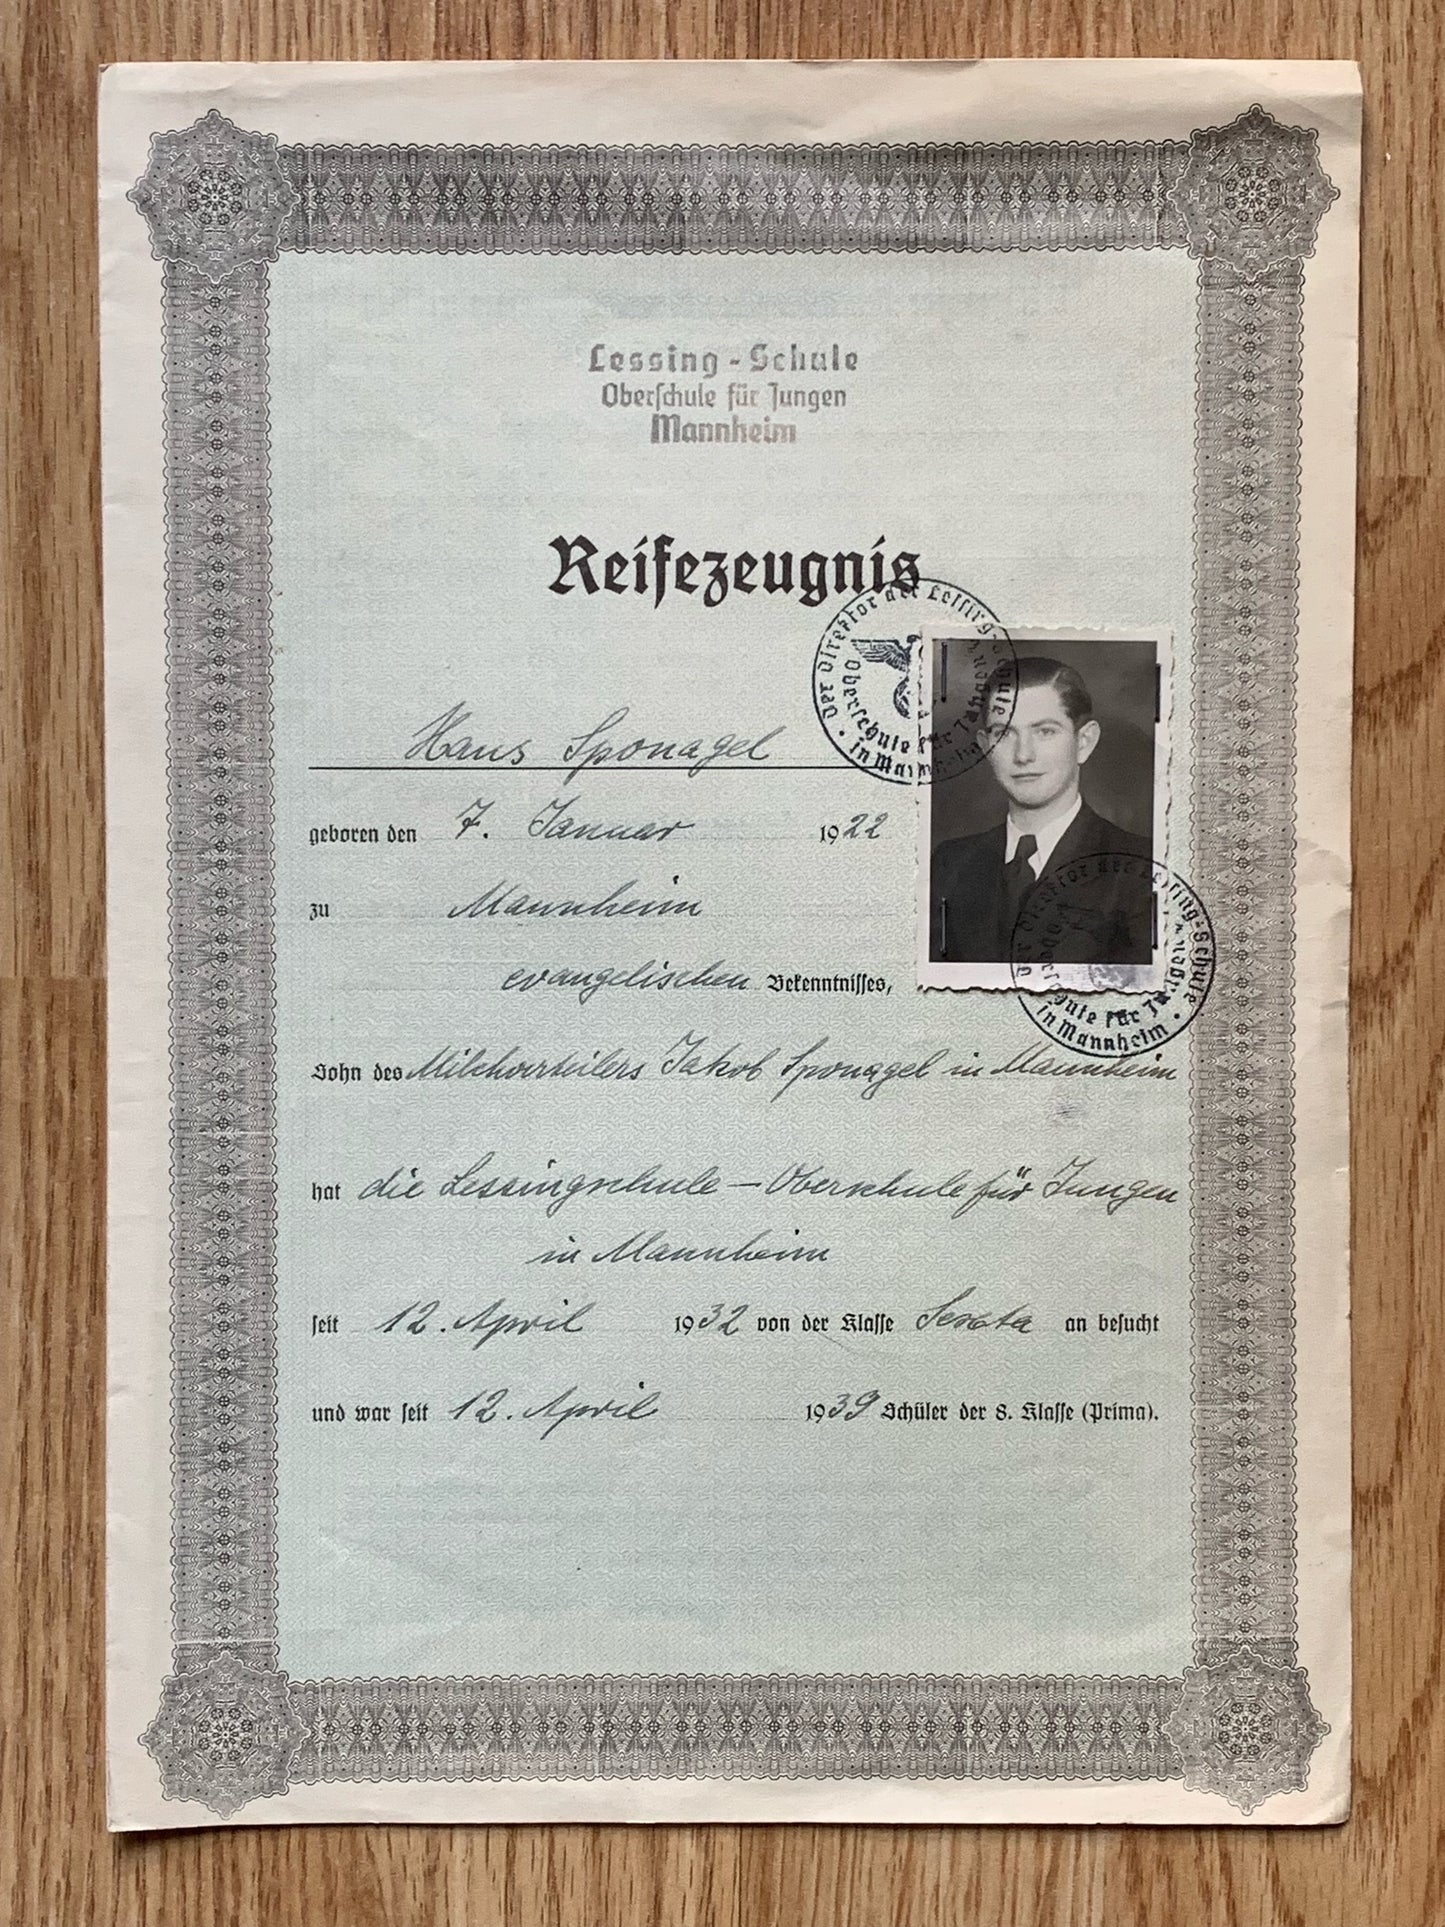 Lessing-Schule
Oberschule für Jungen
Mannheim
Reifezeugnis
Der Direktor der Lessing-Schule
Oberschule für Jungen
in Mannheim
Hans Sponagel
geboren den 7. Januar 1922
zu Mannheim
evangelischen Bekenntnisses,
Der Direktor der Lessing-Schule
Oberschule für Jungen
in Mannheim
Sohn des Milchverteilers Jakob Sponagel in Mannheim
hat die Lessingschule – Oberschule für Jungen
in Mannheim
seit 12. April 1932 von der Klasse Sexta an besucht
und war seit 12. April 1939 Schüler der 8. Klasse (Prima).